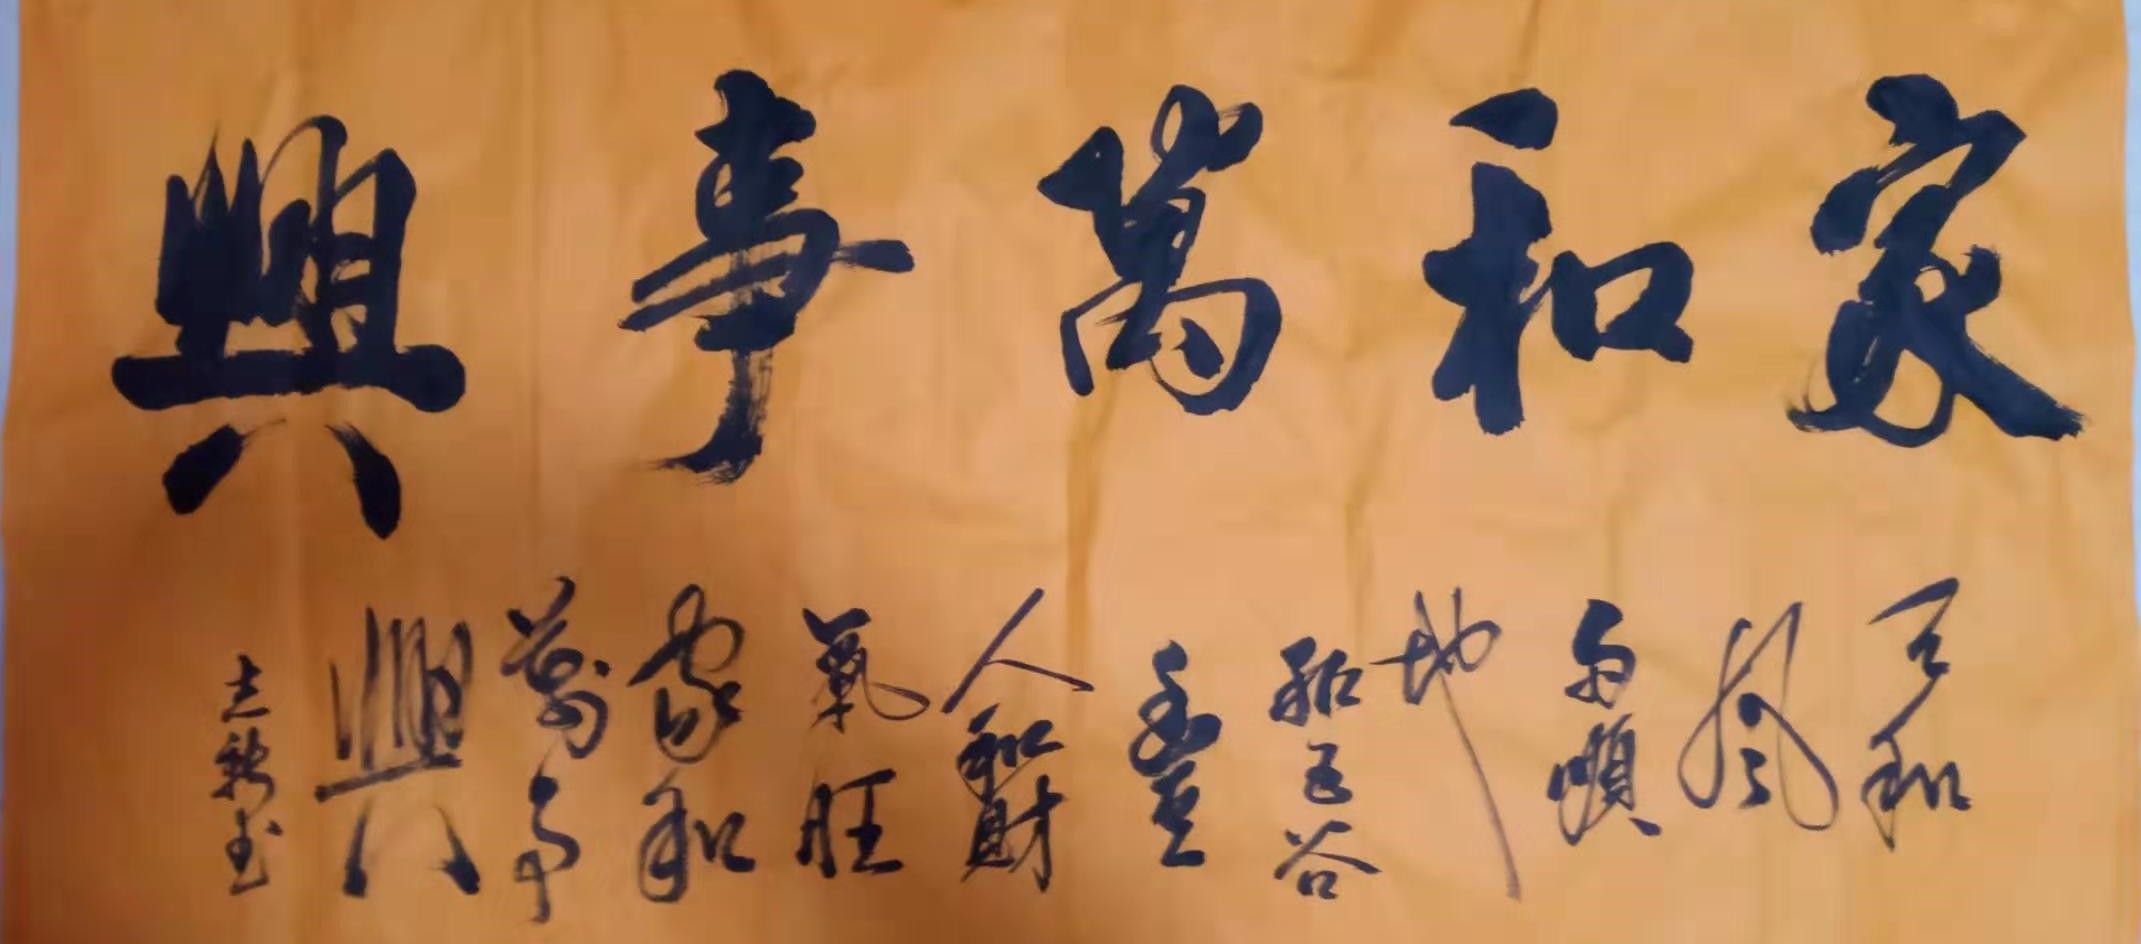 家和萬事興
天和
風
雨順
地
和五谷
豊
人和財
氣旺
家和
萬事
興
志
書